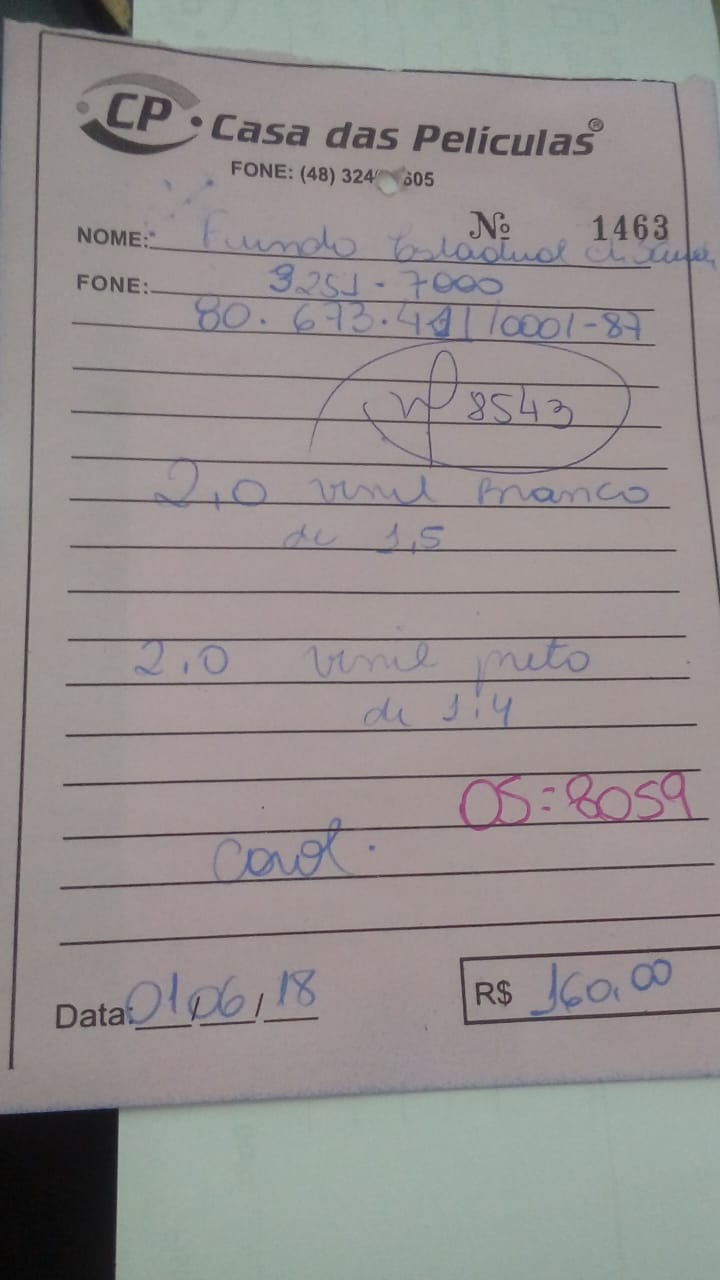 CP • Casa das Películas®
FONE: (48) 324 605
Nº 1463
NOME: Fundo Estadual de
FONE: 3251-7000
80.673.411/0001-87
nf 8543
2,0 vinil Branco
de 1,5
2,0 vinil preto
de 1,4
OS=8059
Carol.
Data: 01/06/18
R$ 160,00